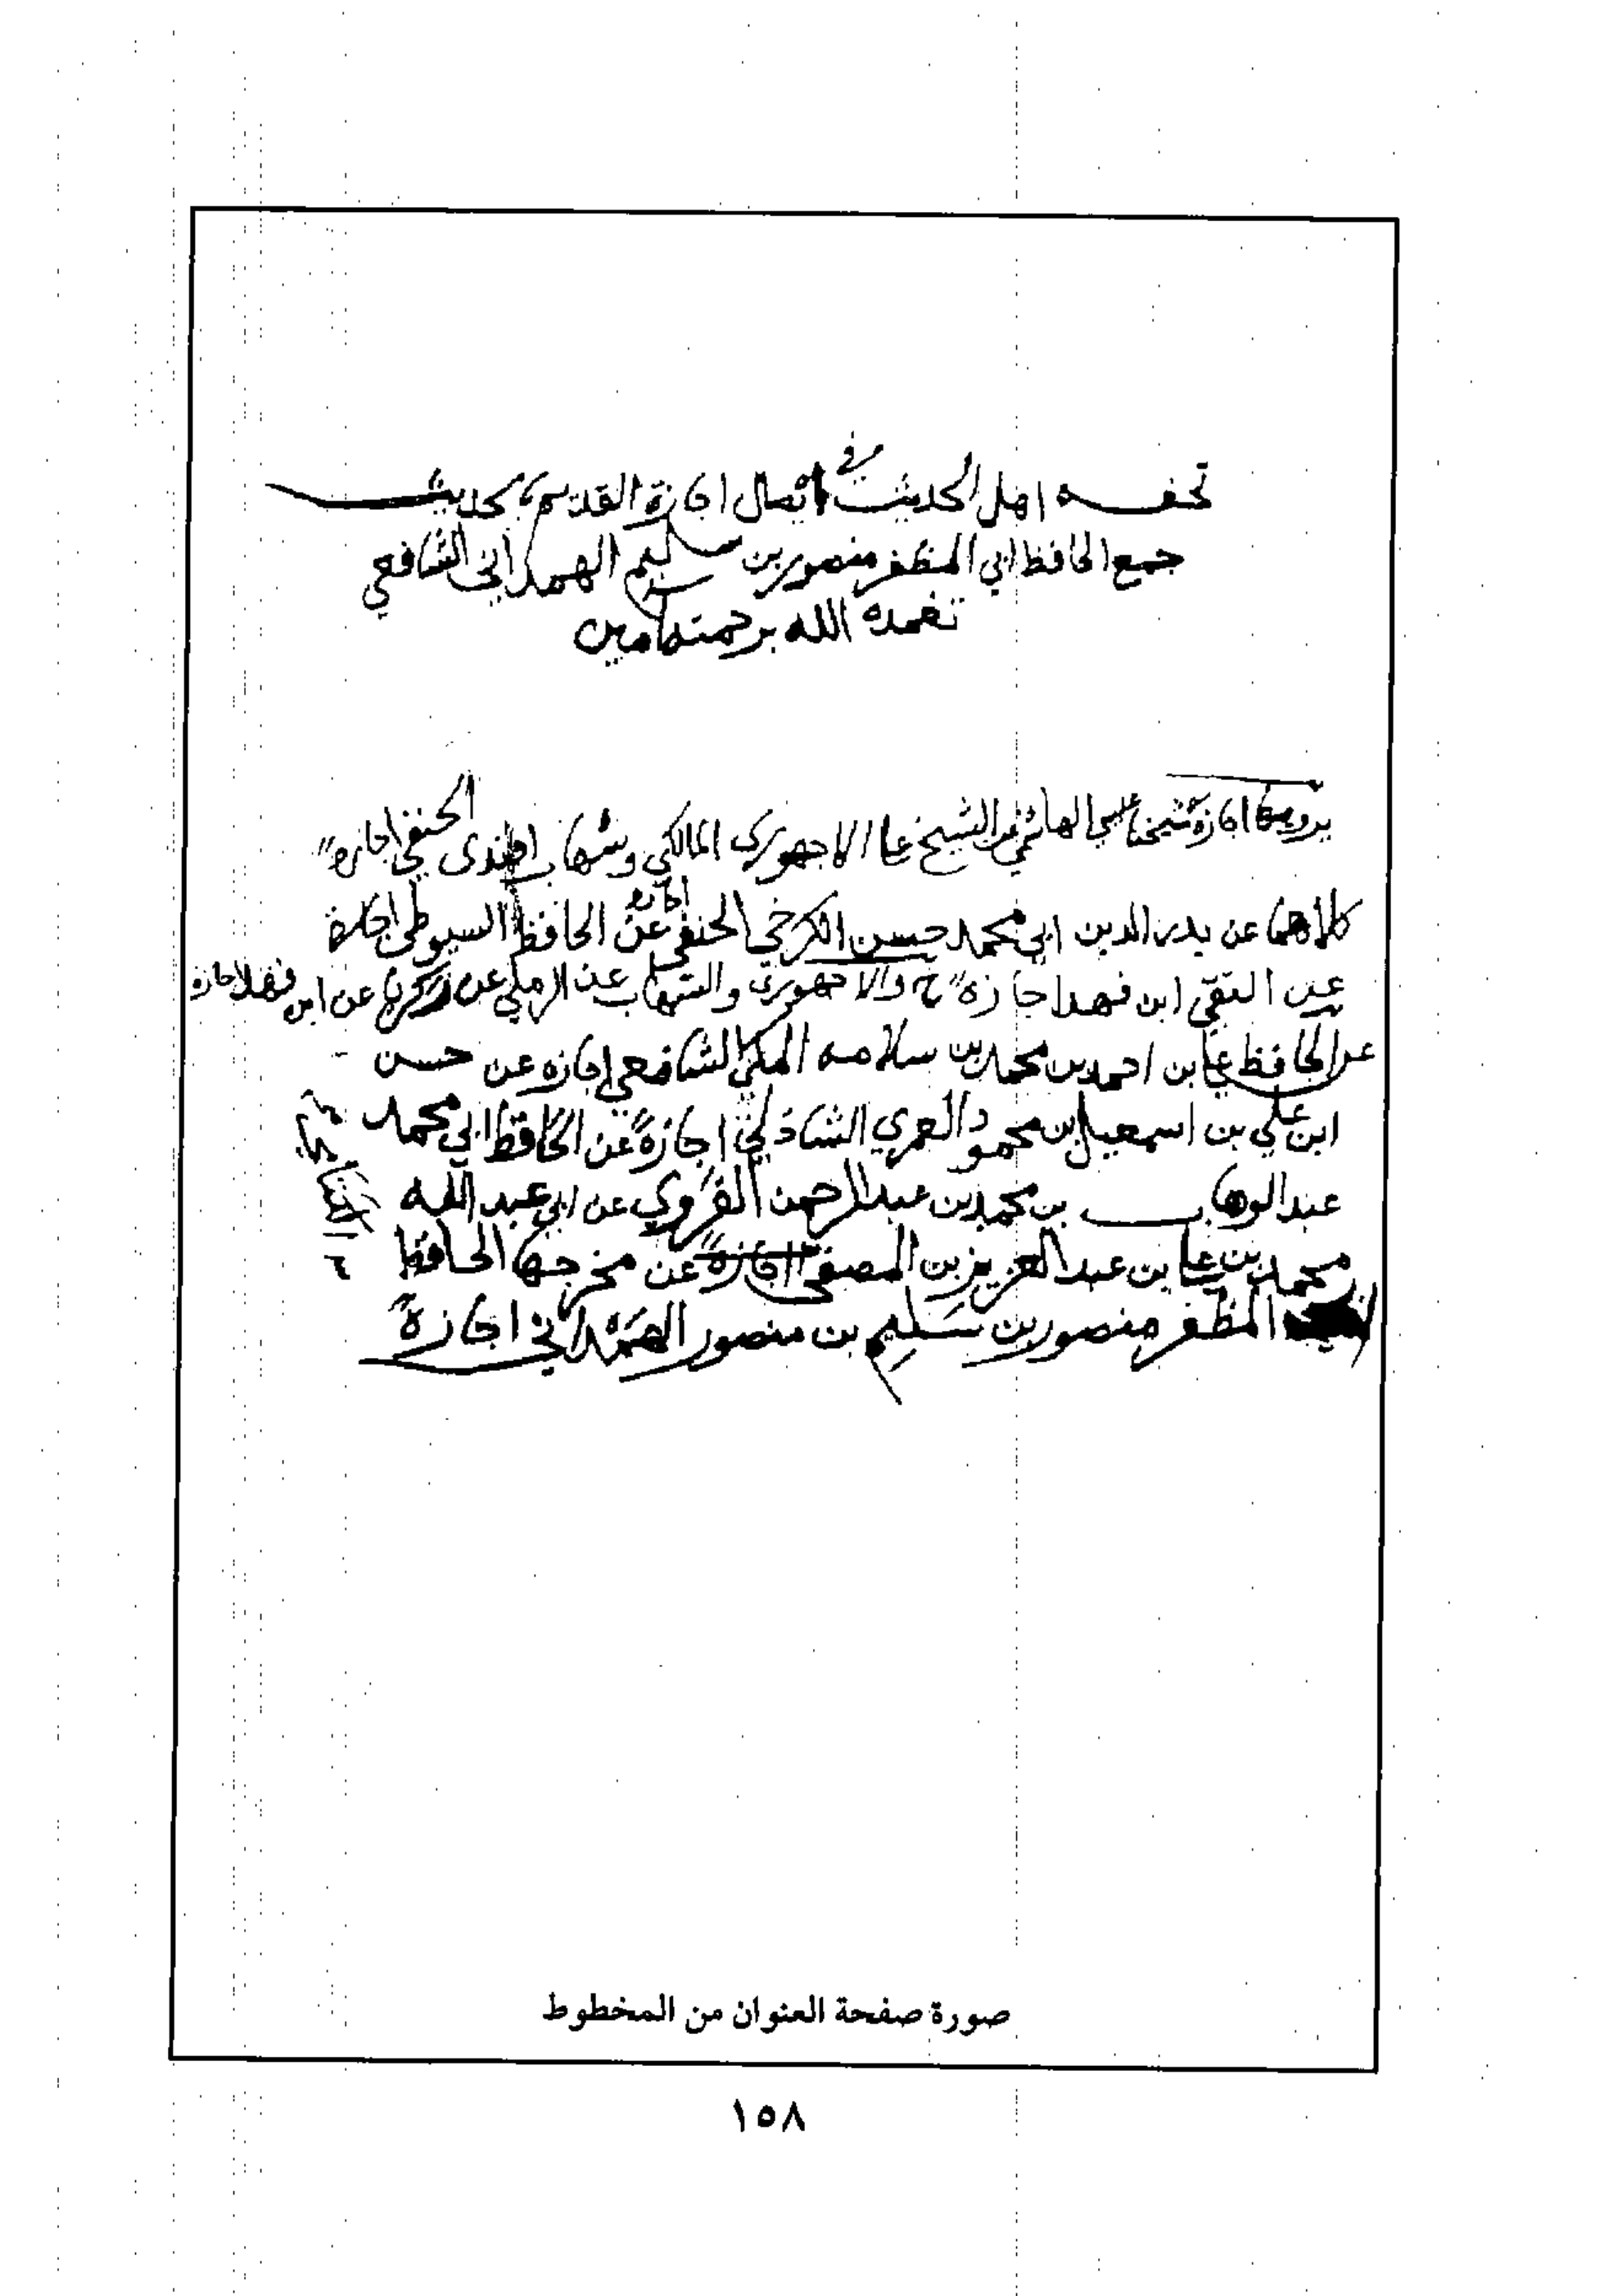 تحفه اهل الحديث في اتصال اجازة القديم بالحديث
جمع الحافظ ابي المظفر منصور بن سليم الهمداني الشافعي
تغمده الله برحمته امين
يرويها اجازة شيخنا عن الشيخ علي الاجهوري المالكي وشهاب افندى الحنفي اجازة
كلاهما عن بدر الدين ابي محمد حسن الكرخي الحنفي اجازة عن الحافظ السيوطي اجازة
عن التقي ابن فهد اجازة ح والاجهوري والشهاب عن الرملي عن زكريا عن ابن فهد اجازه
عن الحافظ علي بن احمد بن محمد بن سلامه المكي الشافعي اجازه عن حسن
ابن علي بن اسمعيل بن محمود العمري الشاذلي اجازة عن الحافظ ابي محمد
عبد الوهاب بن محمد بن عبد الرحمن القروي عن ابي عبد الله
محمد بن علي بن عبد العزيز بن المصفى اجازة عن مخرجها الحافظ
المظفر منصور بن سليم بن منصور الهمداني اجازة
صورة صفحة العنوان من المخطوط
١٥٨